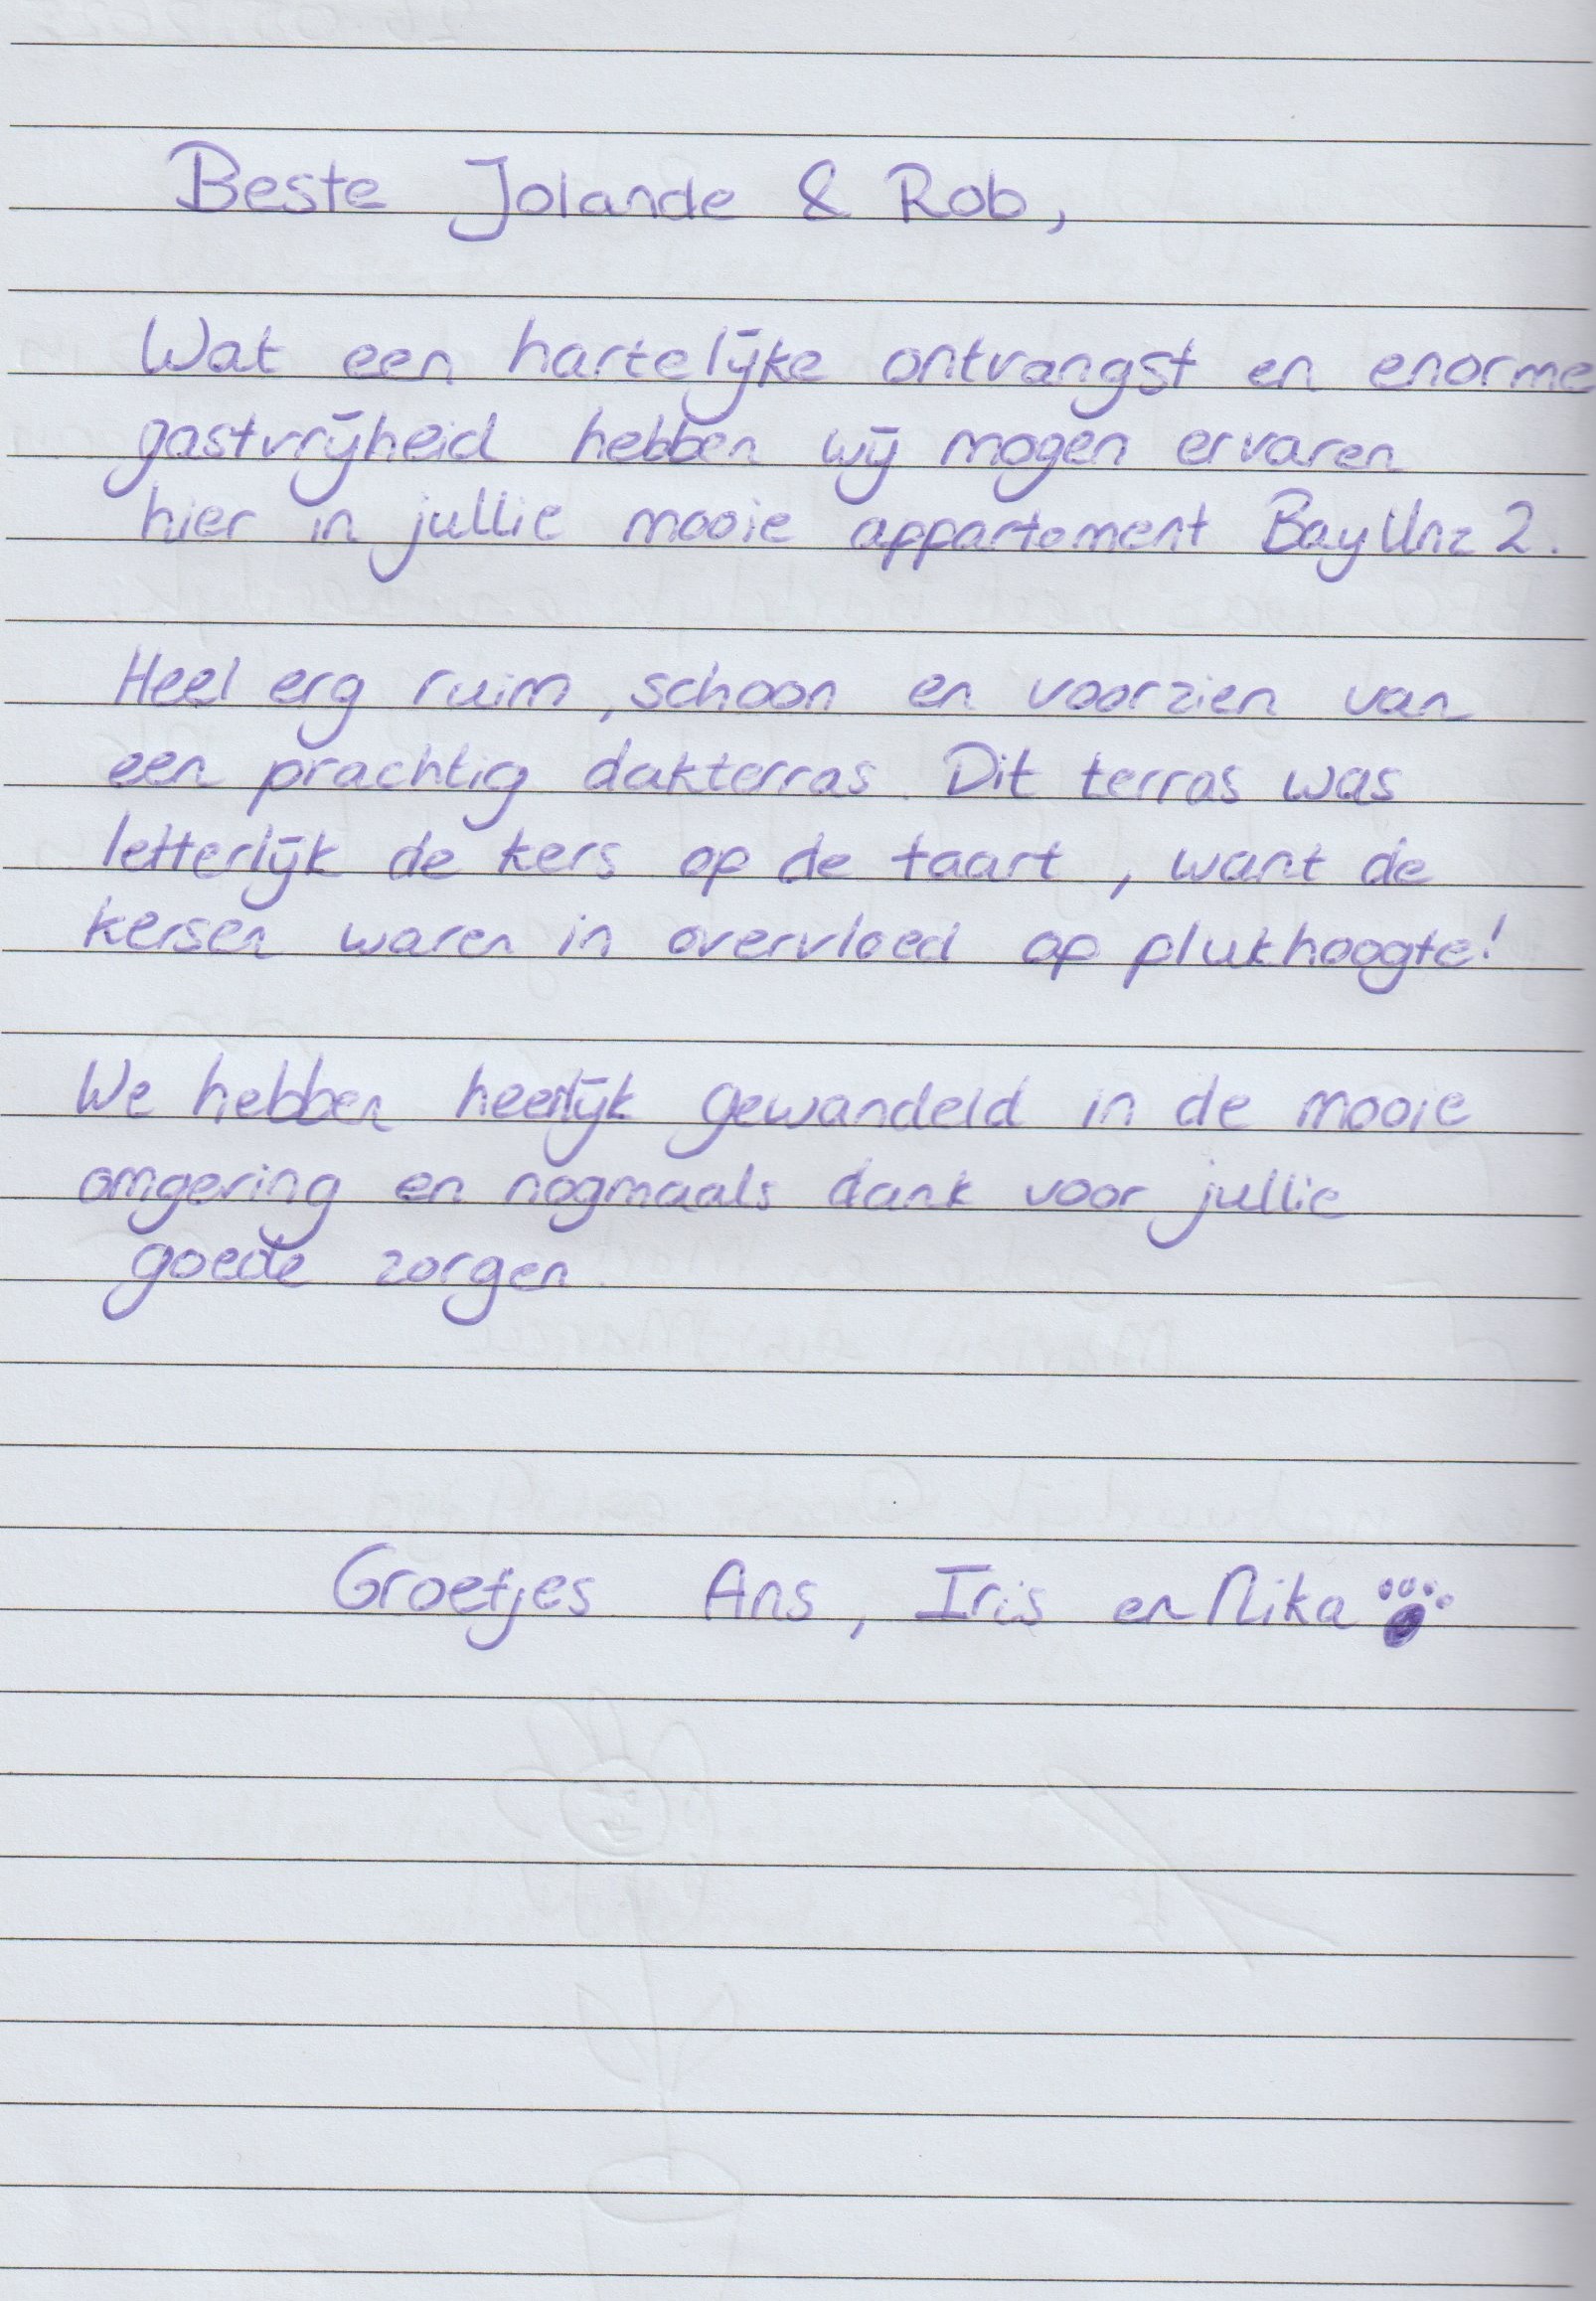 Beste Jolande & Rob,
Wat een hartelijke ontvangst en enorme
gastvrijheid hebben wij mogen ervaren
hier in jullie mooie appartement Bay Unz 2.
Heel erg ruim, schoon en voorzien van
een prachtig dakterras. Dit terras was
letterlijk de kers op de taart, want de
kersen waren in overvloed op plukhoogte!
We hebben heerlijk gewandeld in de mooie
omgeving en nogmaals dank voor jullie
goede zorgen.
Groetjes Ans, Iris en Nika